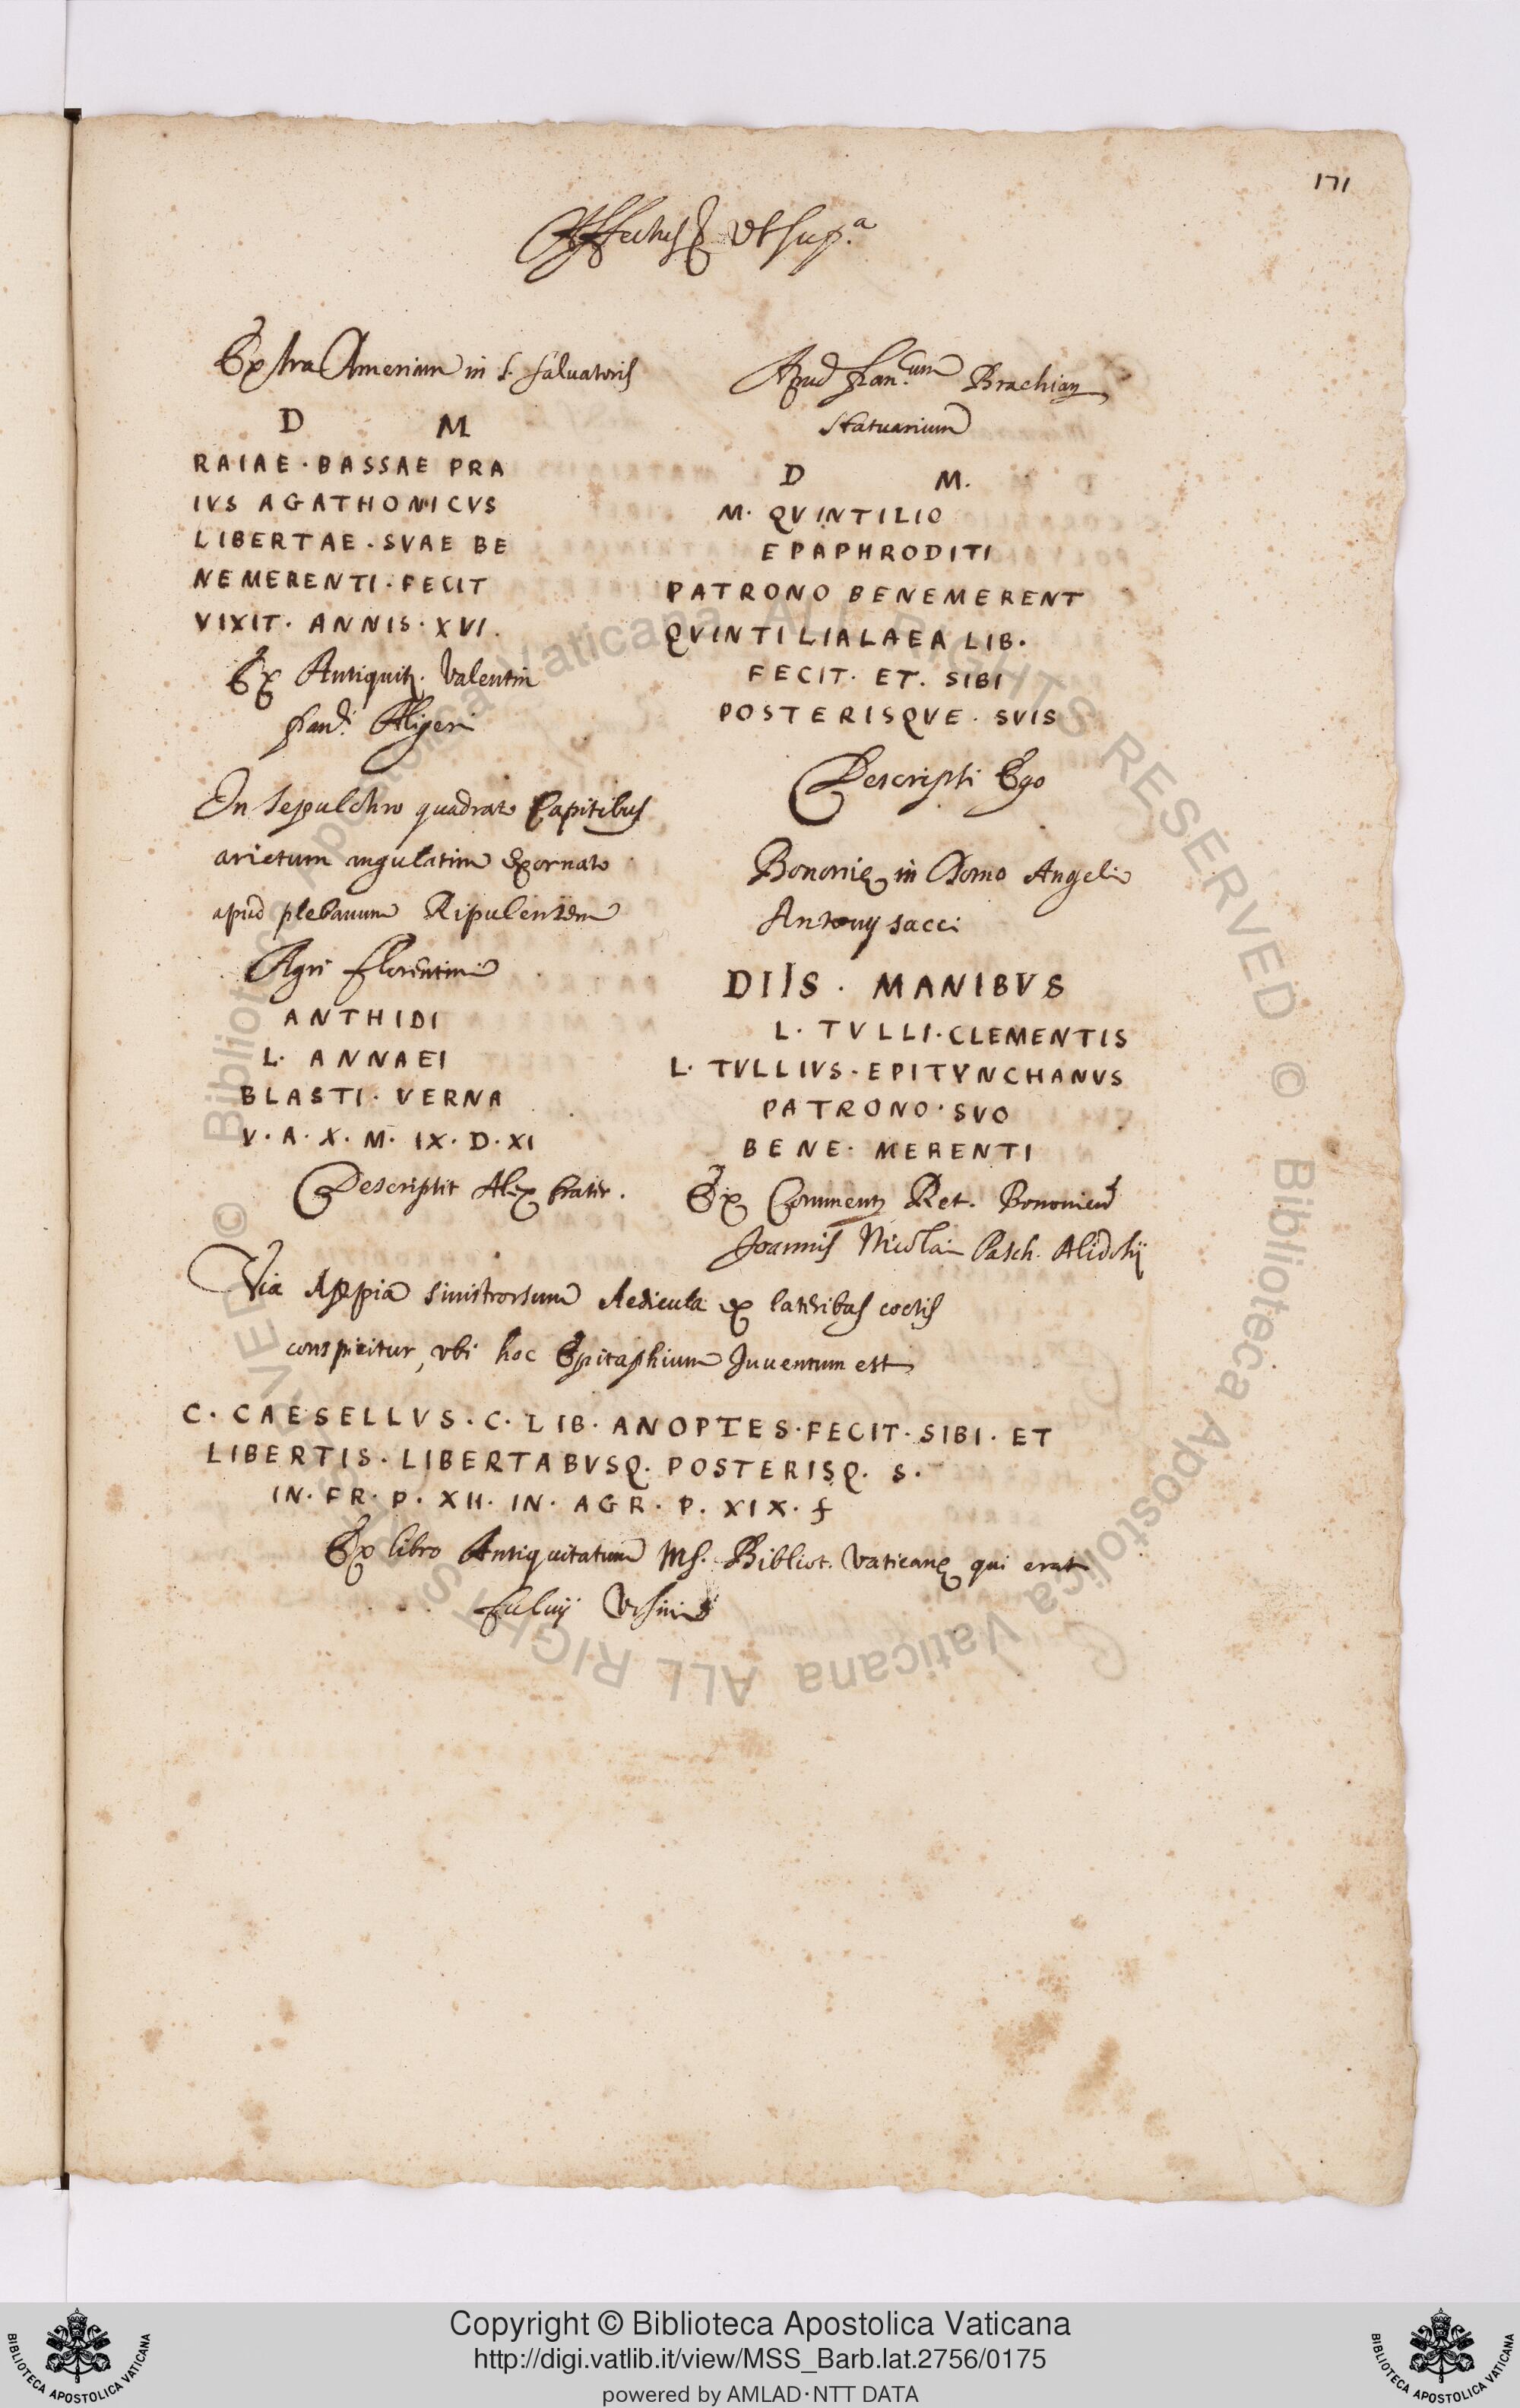 171
Affectus & Vt sup.a
Extra Ameriam in S. Saluatoris
D M
RAIAE · BASSAE PRA
IVS AGATHONICVS
LIBERTAE · SVAE BE
NEMERENTI · FECIT
VIXIT · ANNIS · XVI .
Ex Antiquit. Valentin
Aligeri
In sepulchro quadrato Capitibus
arietum angulatim exornato
apud plebanum Ripulensem
Agri Florentini
ANTHIDI
L · ANNAEI
BLASTI · VERNA
V · A · X · M · IX · D · XI
Descripsit Alex frater .
Apud Fran.cum Brachian
statuarium
D M.
M · QVINTILIO
EPAPHRODITI
PATRONO BENEMERENT
QVINTILIALAEA LIB.
FECIT · ET · SIBI
POSTERISQVE · SVIS
Descripsi Ego
Bononię in Domo Angeli
Antonij sacci
DIIS · MANIBVS
L · TVLLI · CLEMENTIS
L · TVLLIVS · EPITYNCHANVS
PATRONO · SVO
BENE · MERENTI
Ex Comment Ret. Bononien
Joannis Nicolai Pasch. Alidosij
Via Appia sinistrorsum Aedicula ex lateribus coctis
conspicitur, vbi hoc Epitaphium Inuentum est
C · CAESELLVS · C · LIB · ANOPTES · FECIT · SIBI · ET
LIBERTIS · LIBERTABVSQ · POSTERISQ · S ·
IN · FR · P · XII · IN · AGR · P · XIX · f
Ex libro Antiquitatum Ms. Bibliot. Vaticanę qui erat
Fuluij Vrsini
© Biblioteca Apostolica Vaticana ALL RIGHTS RESERVED © Biblioteca Apostolica Vaticana ALL RIGHTS RESERVED
BIBLIOTECA APOSTOLICA VATICANA
Copyright © Biblioteca Apostolica Vaticana
http://digi.vatlib.it/view/MSS_Barb.lat.2756/0175
powered by AMLAD·NTT DATA
BIBLIOTECA APOSTOLICA VATICANA